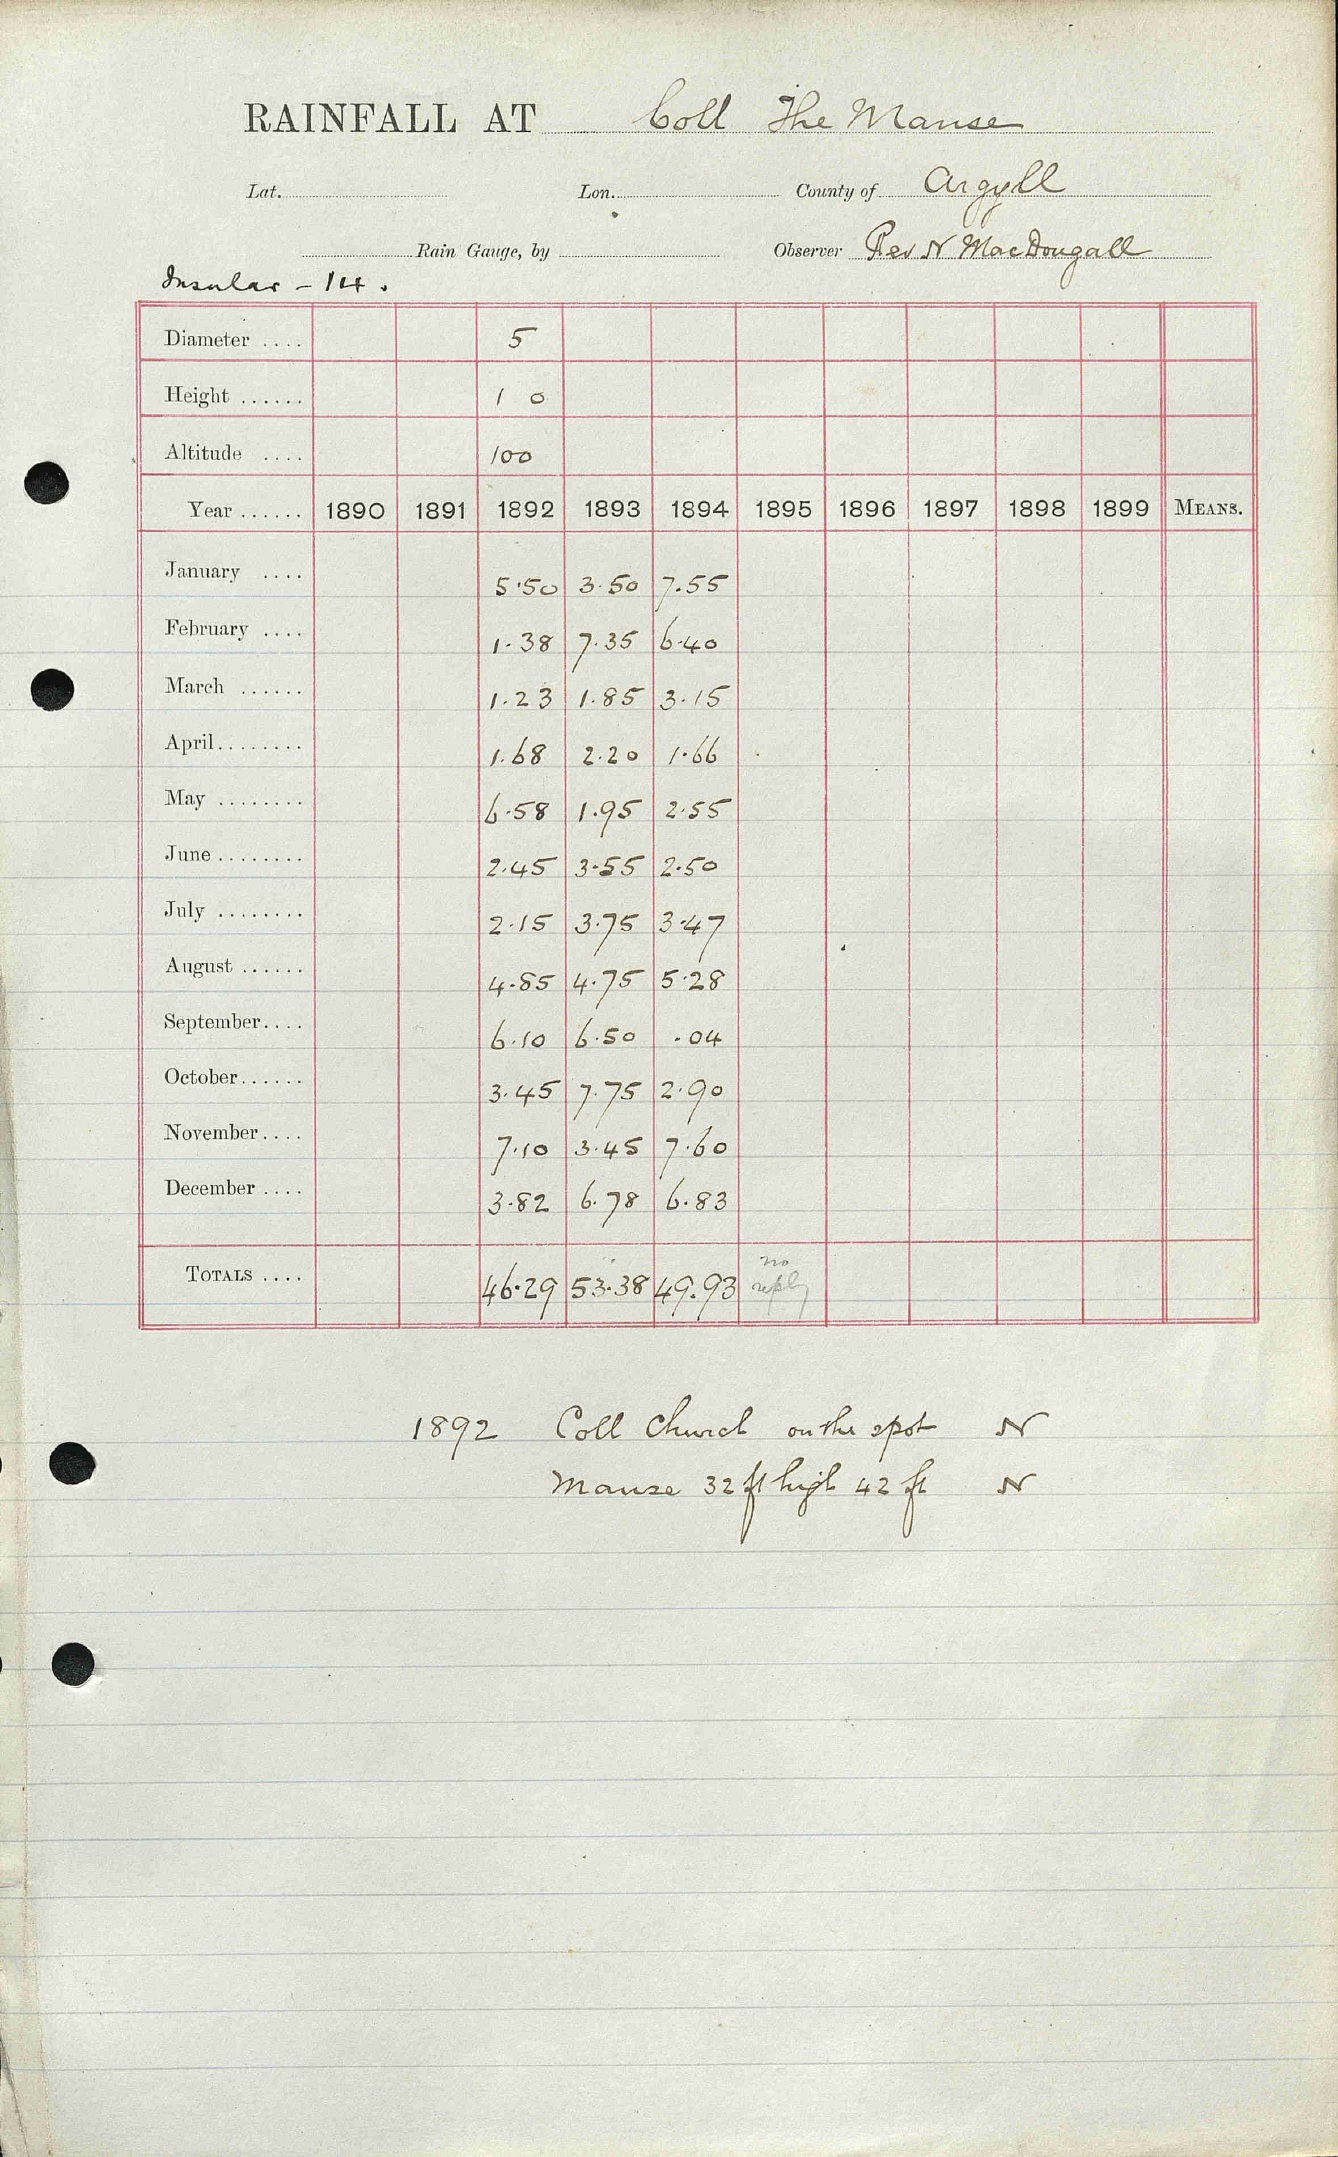 RAINFALL AT Coll The Manse
Lat. Lon. County of Argyll
Rain Gauge, by Observer Rev N MacDougall
Insular - 14.
Diameter .... 5
Height ...... 1 0
Altitude .... 100
Year ...... 1890 1891 1892 1893 1894 1895 1896 1897 1898 1899 MEANS.
January .... 5.50 3.50 7.55
February .... 1.38 7.35 6.40
March ...... 1.23 1.85 3.15
April........ 1.68 2.20 1.66
May ........ 6.58 1.95 2.55
June ........ 2.45 3.55 2.50
July ........ 2.15 3.75 3.47
August ...... 4.85 4.75 5.28
September.... 6.10 6.50 .04
October...... 3.45 7.75 2.90
November.... 7.10 3.45 7.60
December .... 3.82 6.78 6.83
TOTALS .... 46.29 53.38 49.93 no reply
1892 Coll Church on the spot N
Manse 32 ft high 42 ft N